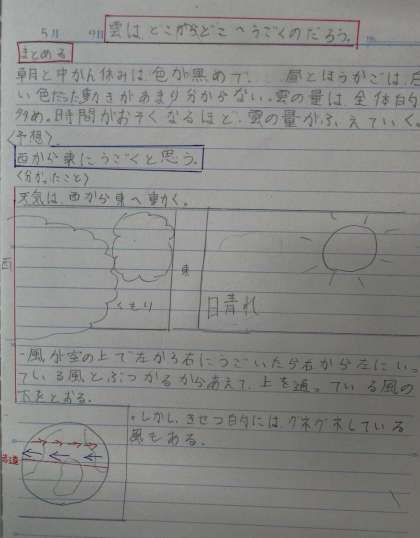 5月 9日 雲は、どこからどこへうごくのだろう。
まとめる
朝と中かん休みは色が黒めで、昼とほうかごは、白
い色だった動きがあまり分からない。雲の量は、全体的
多め。時間がおそくなるほど、雲の量がふえていく。
〈予想〉
西から東にうごくと思う。
〈分かったこと〉
天気は、西から東へ動かく。
西
くもり
東
晴れ
風が空の上で左から右にうごいたら右から左にいっ
ている風とぶつかるからあえて、上を通っている風の
下をとおる。
・しかし、きせつ的には、グネグネしている
風もある。
赤道